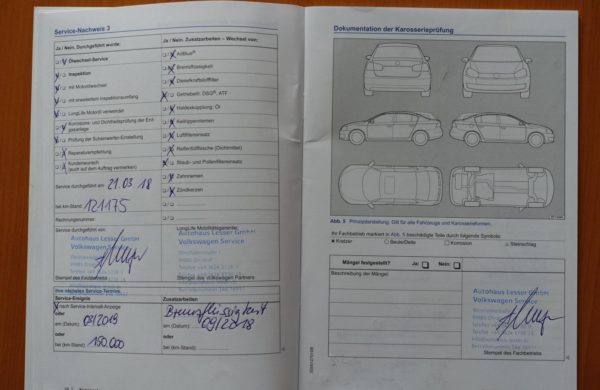 Service-Nachweis 3
Ja / Nein. Durchgeführt wurde:
Ölwechsel-Service
Inspektion
mit Motorölwechsel
mit erweitertem Inspektionsumfang
LongLife Motoröl verwendet
Korrosions- und Dichtheitsprüfung der Erdgasanlage
Prüfung der Scheinwerfer-Einstellung
Reparaturempfehlung
Kundenwunsch
(auch auf dem Auftrag vermerken)
Service durchgeführt am:
21.03 18
bei km-Stand:
121175
Rechnungsnummer
Service durchgeführt von:
Autohaus Lesser GmbH
Volkswagen Service
Stempel des Fachbetriebs
Ja / Nein. Zusatzarbeiten – Wechsel von:
AdBlue®
Bremsflüssigkeit
Dieselkraftstofffilter
Getriebeöl: DSG®, ATF
Haldexkupplung: Öl
Keilrippenriemen
Luftfiltereinsatz
Reifenfüllflasche (Dichtmittel)
Staub- und Pollenfiltereinsatz
Zahnriemen
Zündkerzen
LongLife Mobilitätsgarantie:
Autohaus Lesser GmbH
Volkswagen Service
Stempel des Volkswagen Partners
Ihre nächsten Service-Termine.
Service-Ereignis
nach Service-Intervall-Anzeige
oder
am (Datum): 03/2019
oder
bei (km-Stand): 150.000
Zusatzarbeiten
Bremsflüssigkeit
am (Datum): 09/2018
oder
bei (km-Stand):
Dokumentation der Karosserieprüfung
Abb. 5 Prinzipdarstellung: Gilt für alle Fahrzeuge und Karosserieformen.
Ihr Fachbetrieb markiert in Abb. 5 beschädigte Teile durch folgende Symbole:
Kratzer
Beule/Delle
Korrosion
Steinschlag
Mängel festgestellt?
Ja:
Nein:
Beschreibung der Mängel:
Autohaus Lesser GmbH
Volkswagen Service
Stempel des Fachbetriebs